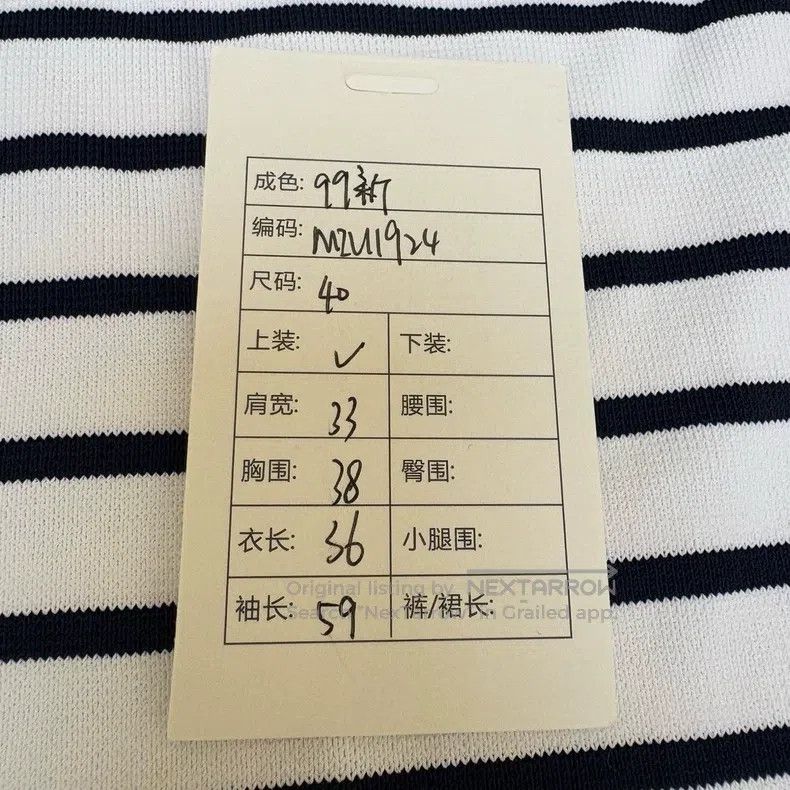 成色: 99新
编码: MZU1924
尺码: 40
上装: ✓ 下装:
肩宽: 33 腰围:
胸围: 38 臀围:
衣长: 36 小腿围:
Original listing by NEXTARROW
袖长: 59 裤/裙长:
Search "NexTarrow" in Grailed app.